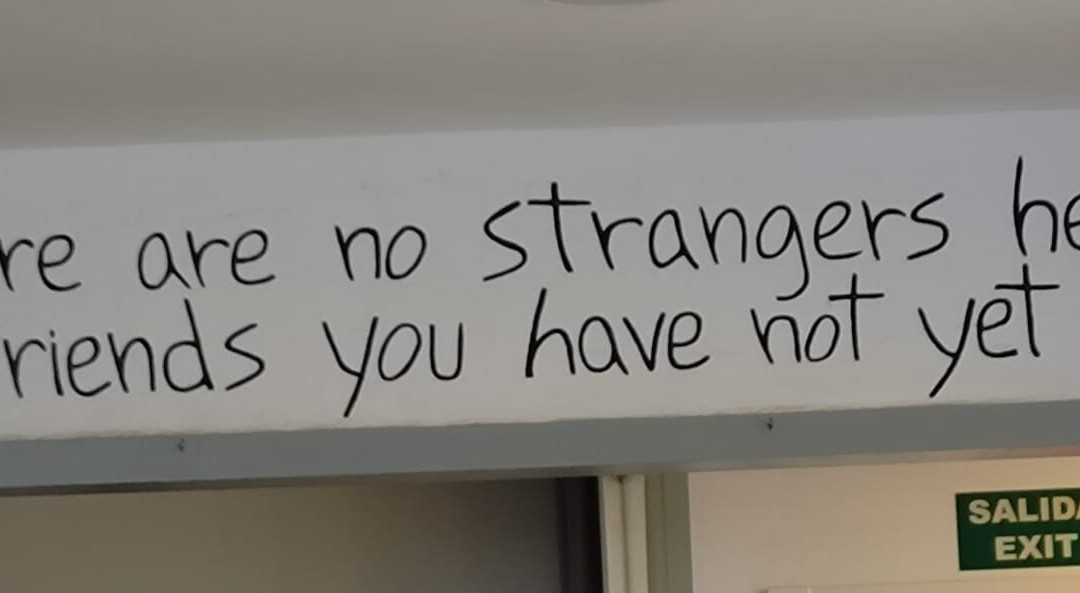 re are no strangers he
riends you have not yet
SALIDA
EXIT